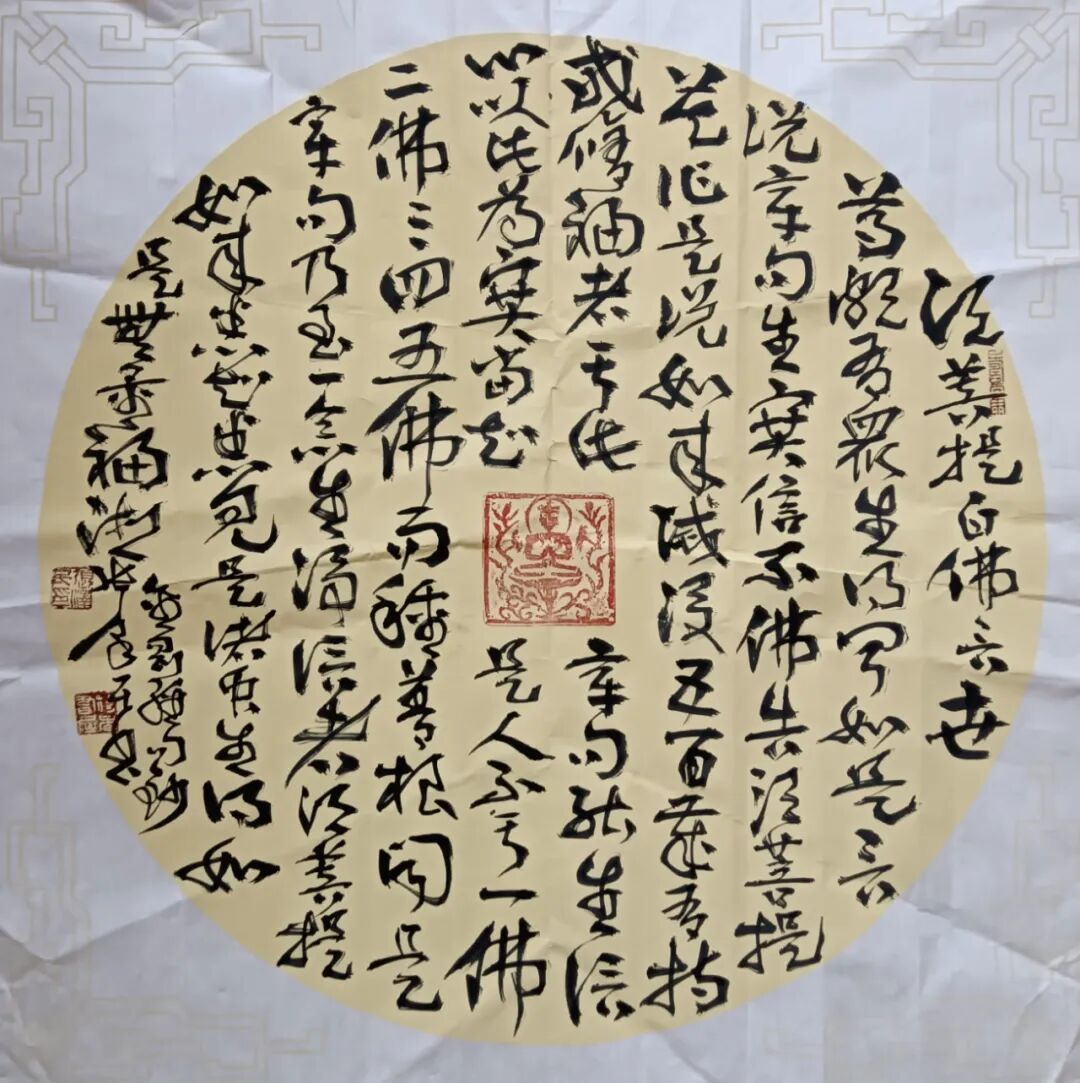 須菩提白佛言世
尊頗有衆生得聞如是言
說章句生實信不佛告須菩提
莫作是說如来滅後五百歲有持
戒修福者于此章句能生信
心以此為實當知是人不于一佛
二佛三四五佛而種善根聞是
章句乃至一念生淨信者須菩提
如来悉知悉見是諸衆生得如
是無量福德
金剛經句抄